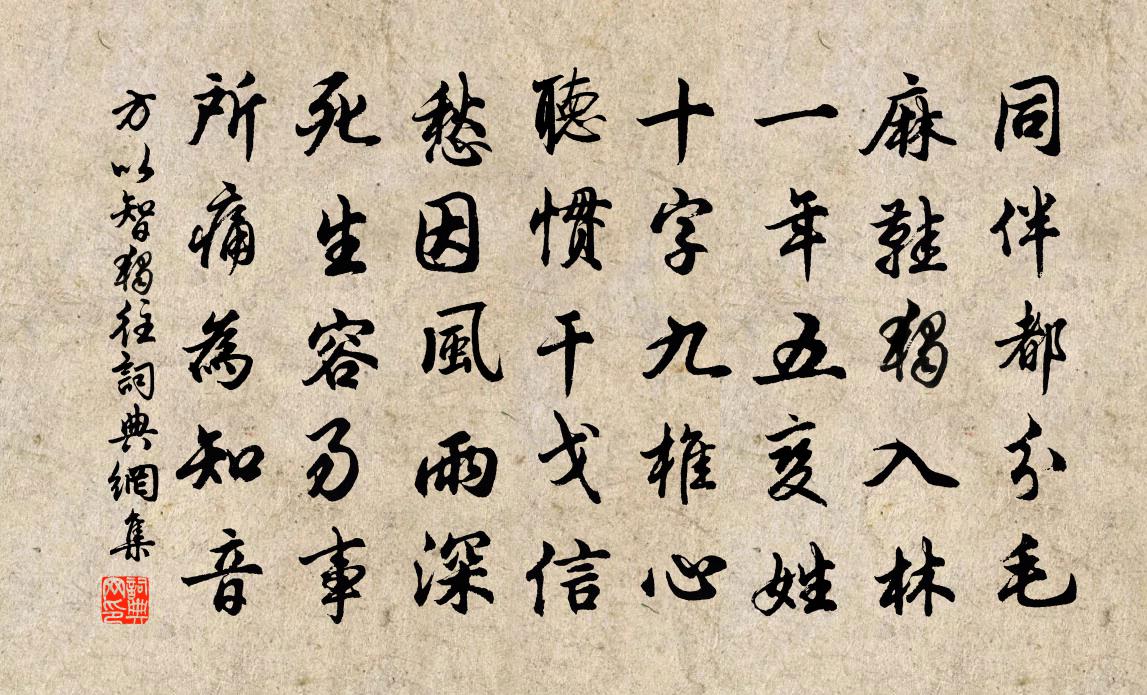 同伴都分手
麻鞋獨入林
一年五變姓
十字九椎心
聽慣干戈信
愁因風雨深
死生容易事
所痛為知音
方以智獨往詞典網集
詞典網印